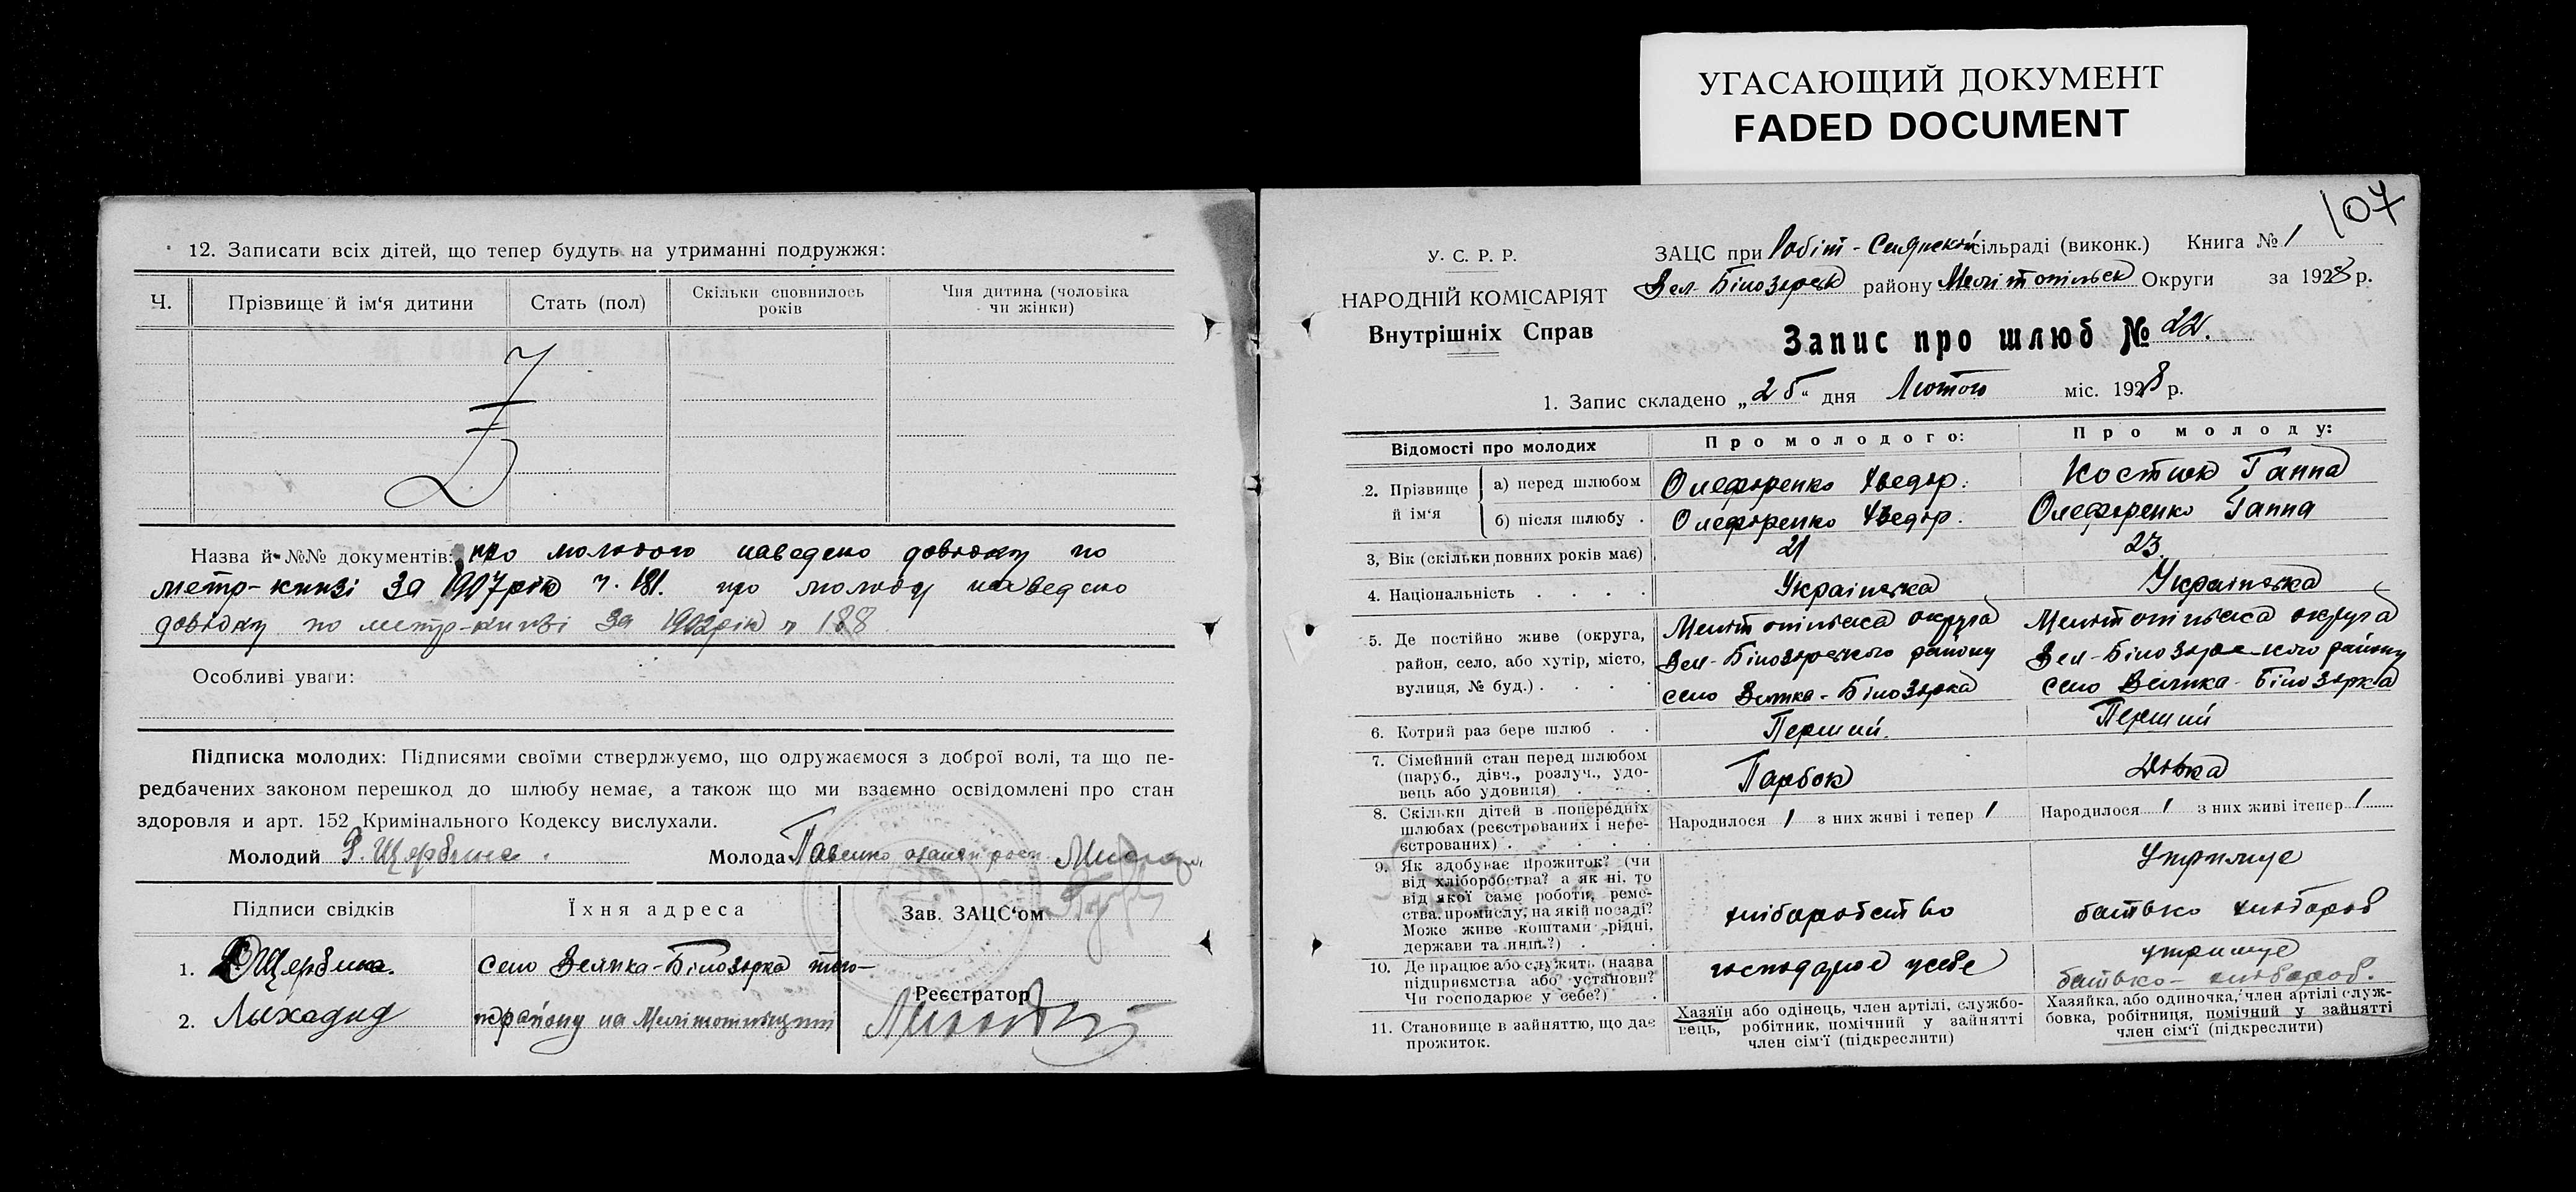 УГАСАЮЩИЙ ДОКУМЕНТ
FADED DOCUMENT
12. Записати всіх дітей, що тепер будуть на утриманні подружжя:
Ч. Прізвище й ім‘я дитини Стать (пол) Скільки сповнилось років Чия дитина (чоловіка чи жінки)
Назва й №№ документів: про молодого наведено довідку по
метр-книзі за 1907 рік ч. 181. про молоду наведено
довідку по метр-книзі за 1902 рік ч 188
Особливі уваги:
Підписка молодих: Підписями своїми стверджуємо, що одружаємося з доброї волі, та що пе-
редбачених законом перешкод до шлюбу немає, а також що ми взаємно освідомлені про стан
здоровля и арт. 152 Кримінального Кодексу вислухали.
Молодий Щербина Молода
Підписи свідків Їхня адреса Зав. ЗАЦС‘ом
1. Щербина. село Велика-Білозірка того-
Реєстратор
2. Лихадид району на Мелітопільщині
107
У. С. Р. Р.
НАРОДНІЙ КОМІСАРІЯТ
Внутрішніх Справ
ЗАЦС при Робіт-Селянской сільраді (виконк.) Книга № 1
Вел-Білозірськ району Мелітопільськ Округи за 1928 р.
Запис про шлюб № 22.
1. Запис складено „25“ дня Лютого міс. 1928 р.
Відомості про молодих Про молодого: Про молоду:
2. Прізвище й ім‘я
а) перед шлюбом Олефіренко Хведір. Костюк Ганна
б) після шлюбу . Олефіренко Хведір. Олефіренко Ганна
3, Вік (скільки повних років має) 21 23.
4. Національність . . . . Українська Українська
5. Де постійно живе (округа, Мелітопільска округа Мелітопільска округа
район, село, або хутір, місто, Вел-Білозірського району Вел-Білозірського району
вулиця, № буд.) . . . . село Велика-Білозірка село Велика-Білозірка
6. Котрий раз бере шлюб . . Перший. Перший
7. Сімейний стан перед шлюбом
(паруб., дівч., розлуч., удо-
вець або удовиця) . . . Парбок Дівка
8. Скільки дітей в попередніх
шлюбах (реєстрованих і нере-
єстрованих) . . . . . Народилося 1 з них живі і тепер 1 Народилося 1 з них живі ітепер 1
9. Як здобуває прожиток? (чи
від хліборобства? а як ні, то
від якої саме роботи, реме-
ства, промислу, на якій посаді?
Може живе коштами рідні,
держави та инш.?) . . хліборобство утримує батько хлібороб
10. Де працює або служить (назва
підприємства або установи?
Чи господарює у себе?) . господарює у себе утримує батько-хлібороб.
11. Становище в зайняттю, що дає
прожиток.
Хазяїн або одінець, член артілі, службо-
вець, робітник, помічний у зайнятті
член сім‘ї (підкреслити)
Хазяйка, або одиночка, член артілі служ-
бовка, робітниця, помічний у зайнятті
член сім‘ї (підкреслити)